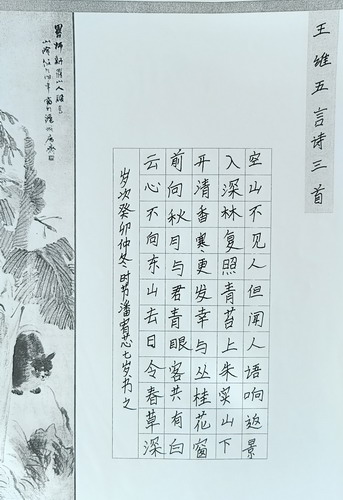 王维五言诗三首
空山不见人但闻人语响返景
入深林复照青苔上朱实山下
开清香寒更发幸与丛桂花窗
前向秋月与君青眼客共有白
云心不向东山去日令春草深
岁次癸卯仲冬时节潘宥芯七岁书之